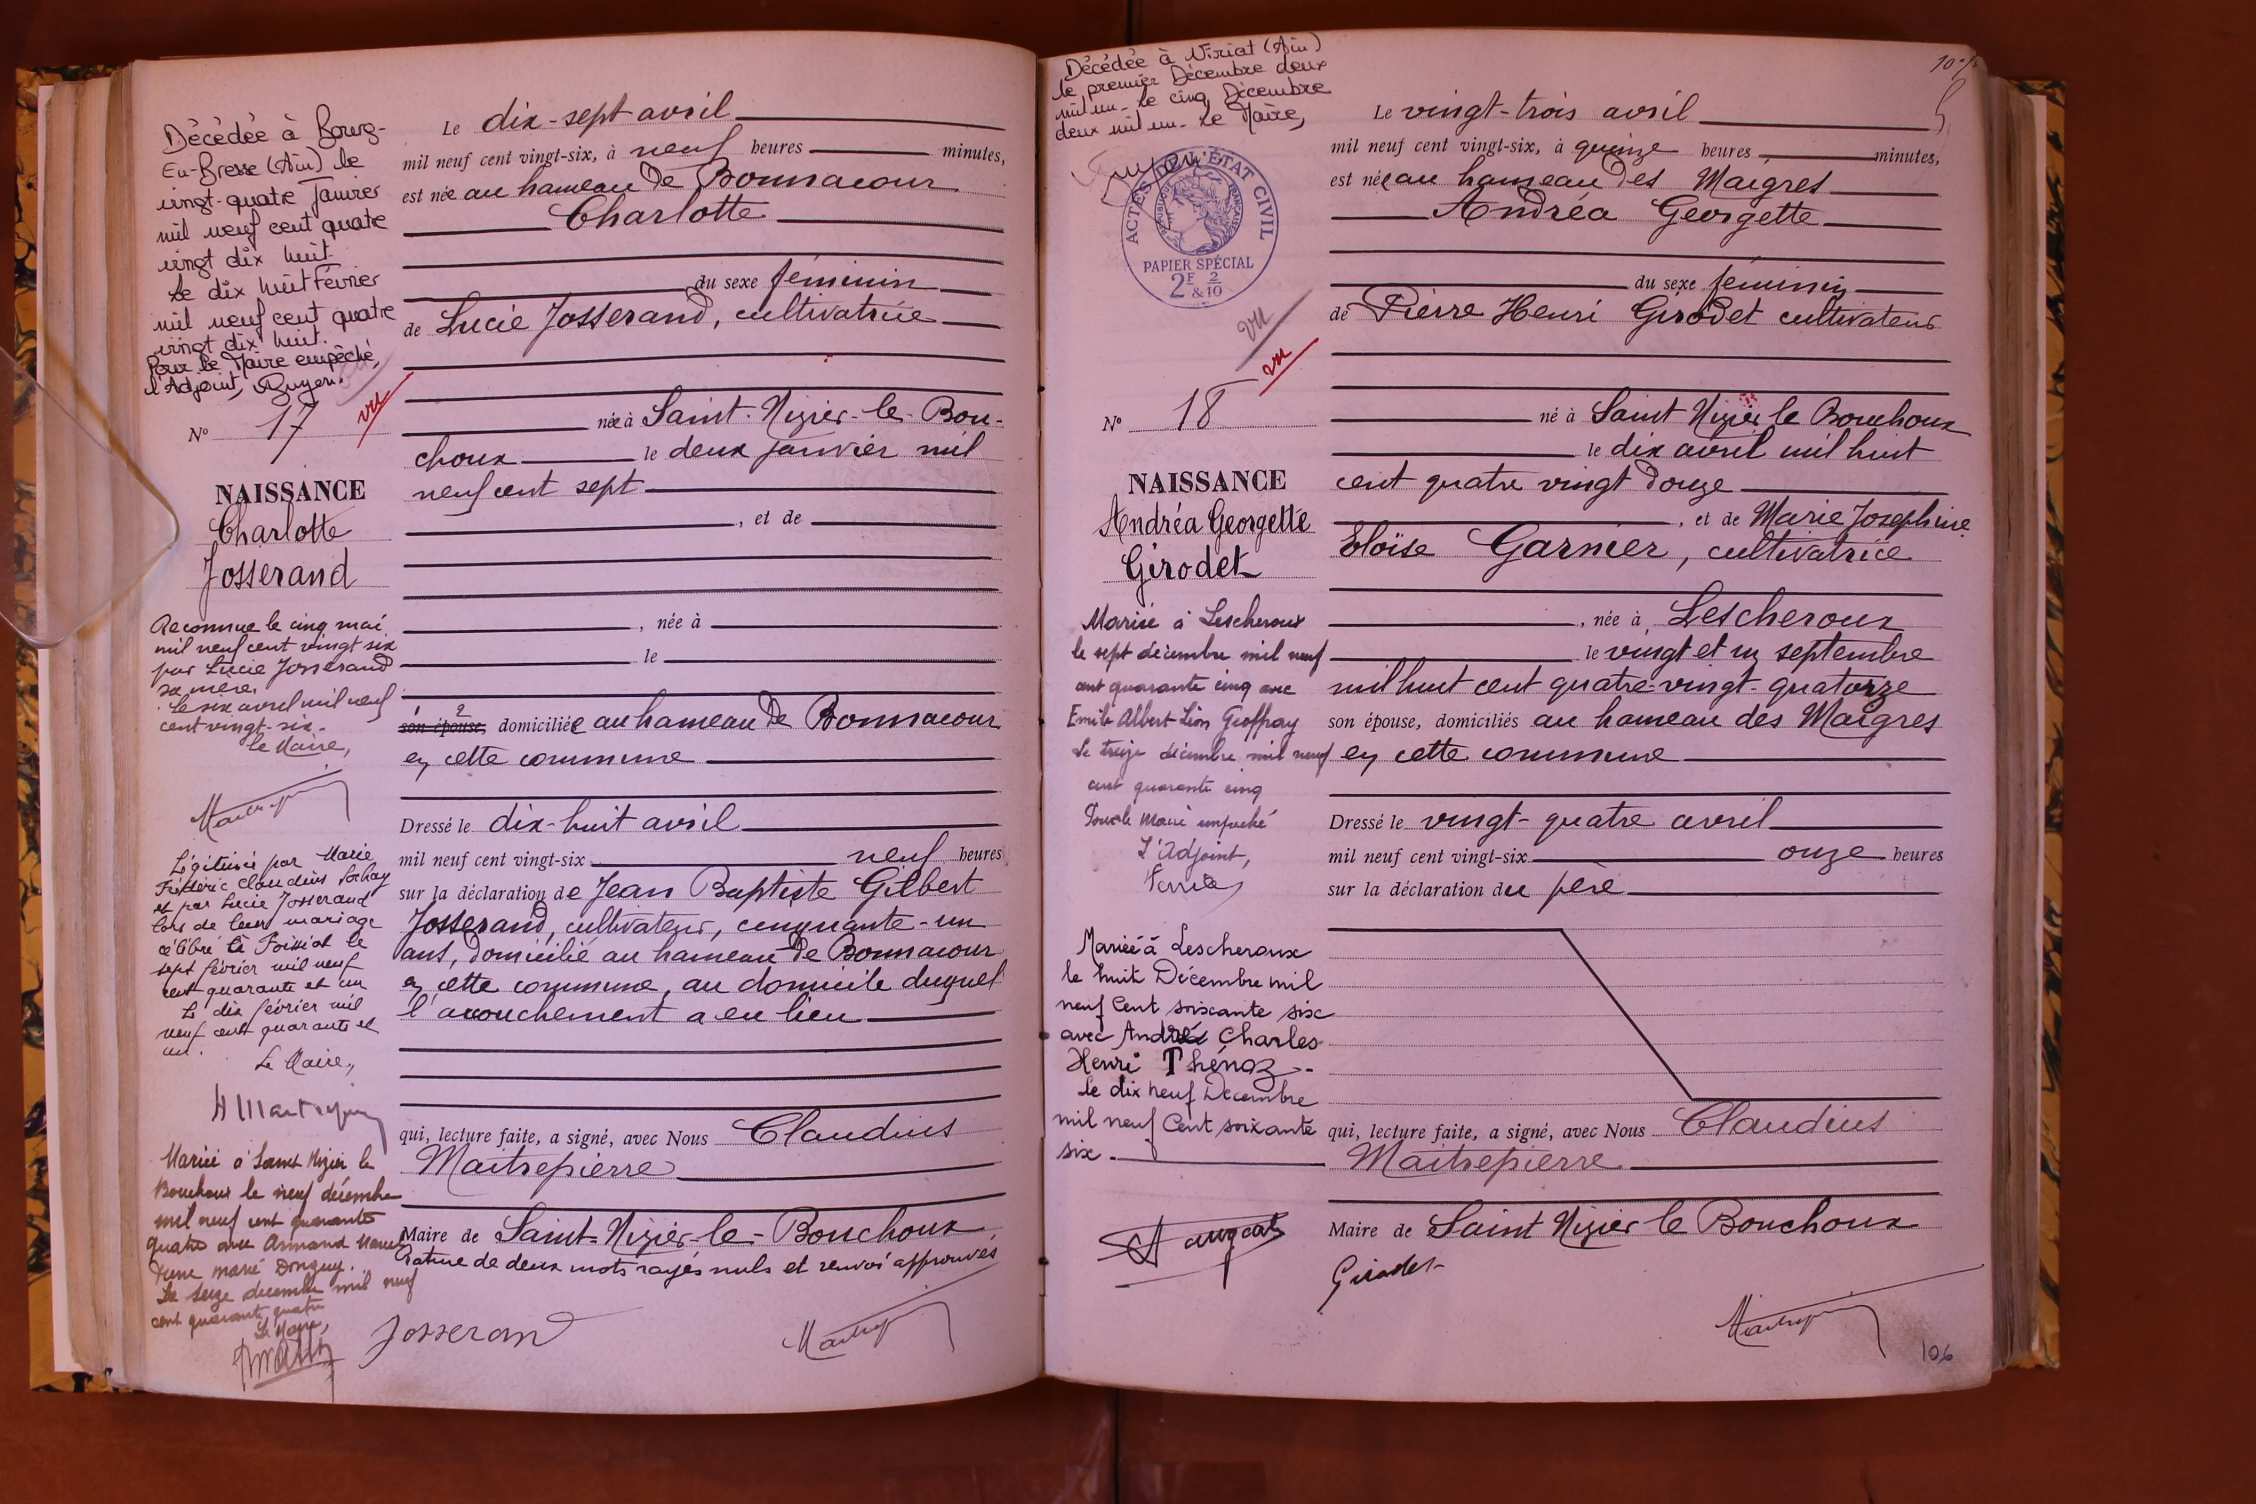 Décédée à Bourg-
En-Bresse (Ain) le
vingt-quatre Janvier
mil neuf cent quatre
vingt dix huit.
Le dix huit Février
mil neuf cent quatre
vingt dix huit.
Pour le Maire empêché,
l'Adjoint,
vu
N° 17
NAISSANCE
Charlotte
Josserand
Reconnue le cinq mai
mil neuf cent vingt six
par Lucie Josserand
sa mère.
Le six avril mil neuf
cent vingt-six.
Le Maire,
Légitimée par Marie
Frédéric Claudius
et par Lucie Josserand
lors de leur mariage
célébré à Foissiat le
sept février mil neuf
cent quarante et un
Le dix février mil
neuf cent quarante et
un.
Le Maire,
Mariée à Saint Nizier le
Bouchoux le neuf décembre
mil neuf cent quarante
quatre avec Armand Marcel
Donguy.
Le seize décembre mil neuf
cent quarante quatre
Le Maire,
Le dix-sept avril
mil neuf cent vingt-six, à neuf heures minutes,
est née au hameau de Bonnacour
Charlotte
du sexe féminin
de Lucie Josserand, cultivatrice
née à Saint-Nizier-le-Bou-
choux le deux janvier mil
neuf cent sept
, et de
, née à
le
2
son épouse, domiciliée au hameau de Bonnacour
en cette commune
Dressé le dix-huit avril
mil neuf cent vingt-six neuf heures
sur la déclaration de Jean Baptiste Gilbert
Josserand, cultivateur, cinquante-un
ans, domicilié au hameau de Bonnacour
en cette commune, au domicile duquel
l'accouchement a eu lieu
qui, lecture faite, a signé, avec Nous Claudius
Maitrepierre
Maire de Saint-Nizier-le-Bouchoux
Rature de deux mots rayés nuls et renvoi approuvés
Josserand
Décédée à Viriat (Ain)
le premier Décembre deux
mil un. Le cinq Décembre
deux mil un. Le Maire,
ACTES DE L'ÉTAT CIVIL
RÉPUBLIQUE FRANÇAISE
PAPIER SPÉCIAL
2F & 2/10
vu
vu
N° 18
NAISSANCE
Andréa Georgette
Girodet
Mariée à Lescheroux
le sept décembre mil neuf
cent quarante cinq avec
Emile Albert Léon Geoffray
Le treize décembre mil neuf
cent quarante cinq
Pour le Maire empêché
L'Adjoint,
Mariée à Lescheroux
le huit Décembre mil
neuf Cent soixante six
avec André Charles
Henri Thénoz.
Le dix neuf Décembre
mil neuf Cent soixante
six.
Le vingt-trois avril
mil neuf cent vingt-six, à quinze heures minutes,
est née au hameau des Maigres
Andréa Georgette
du sexe féminin
de Pierre Henri Girodet cultivateur
né à Saint Nizier le Bouchoux
le dix avril mil huit
cent quatre vingt douze
, et de Marie Joséphine
Eloïse Garnier, cultivatrice
, née à Lescheroux
le vingt et un septembre
mil huit cent quatre-vingt-quatorze
son épouse, domiciliés au hameau des Maigres
en cette commune
Dressé le vingt-quatre avril
mil neuf cent vingt-six onze heures
sur la déclaration du père
qui, lecture faite, a signé, avec Nous Claudius
Maitrepierre
Maire de Saint Nizier le Bouchoux
Girodet
106